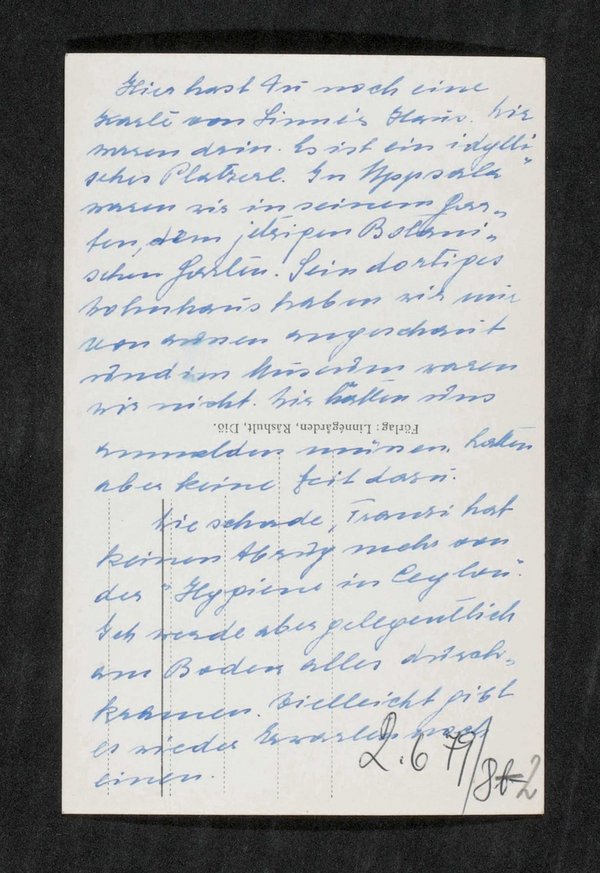 Hier hast Du noch eine
Karte von Linné's Haus. Wir
waren drin. Es ist ein idylli-
sches Platzerl. In Uppsala
waren wir in seinem Gar-
ten, dem jetzigen Botani-
schen Garten. Sein dortiges
Wohnhaus haben wir nur
von aussen angeschaut
und im Museum waren
wir nicht. Wir hätten uns
Förlag: Linnégården, Råshult, Diö.
anmelden müssen, hatten
aber keine Zeit dazu.
Wie schade, Franzi hat
keinen Abzug mehr von
der "Hygiene in Ceylon".
Ich werde aber gelegentlich
am Boden alles durch-
kramen. Vielleicht gibt
es wieder Erwarten noch
einen.
2.6 79/8t-2